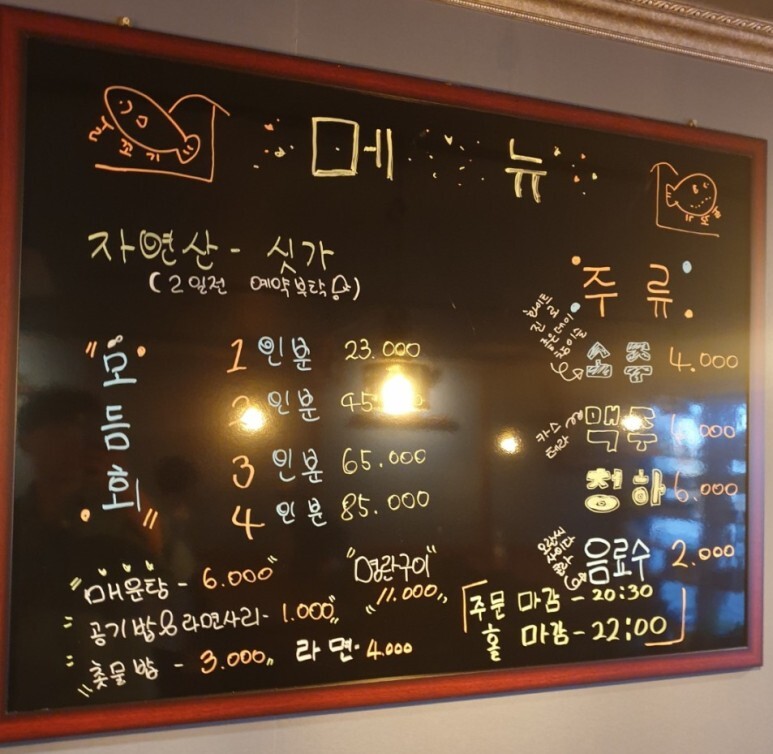 꼬기
메뉴
자연산 - 싯가
(2일전 예약부탁)
"모듬회"
1인분 23.000
2인분
3인분 65.000
4인분 85.000
"매운탕 - 6.000"
공기밥&라면사리 - 1.000"
"촛물밥 - 3.000"
라면 - 4.000
"명란구이"
"11.000"
주류
소주 4.000
카스
테라
맥주
청하 6.000
음료수 2.000
주문 마감 - 20:30
홀 마감 - 22:00